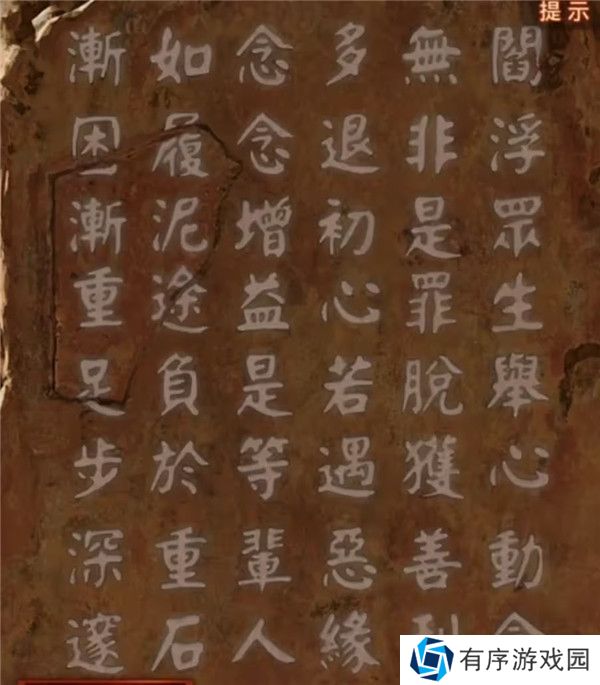 提示
閻浮眾生舉心動
無非是罪脫獲善
多退初心若遇惡緣
念念增益是等輩人
如履泥途負於重石
漸困漸重足步深邃
有序游戏园